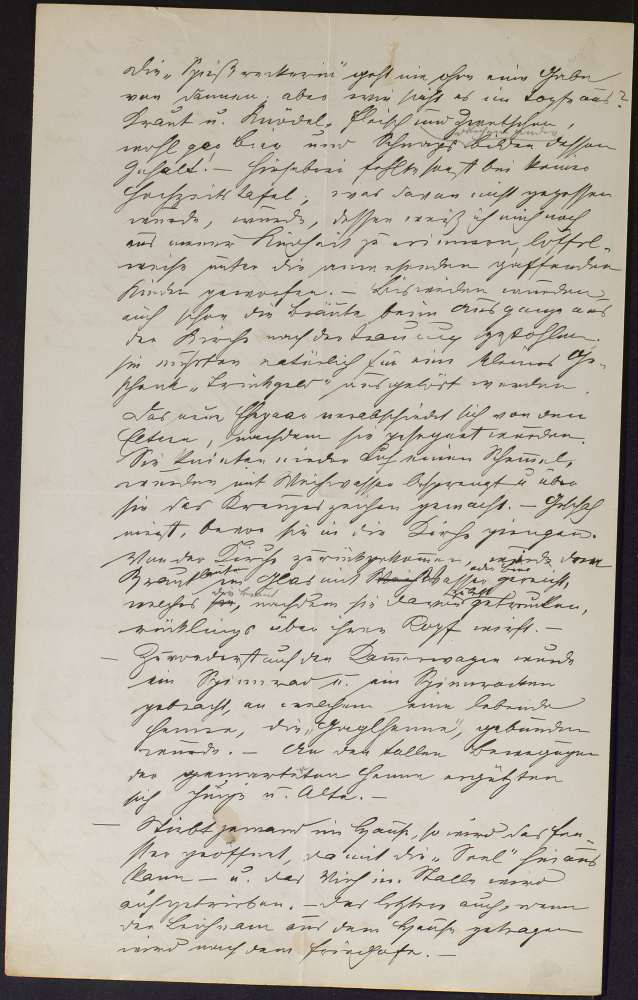 Die „Spießreckerin" geht nie ohne eine Gabe
von dannen. aber wie sieht es im Topfe aus?
Kraut u. Knödel, Fleisch und Zwetschen,
wohl gar Bier und Schnaps bilden dessen
Gehalt. — Hiebei fehlte fast bei keiner
Hochzeitstafel; was davon nicht gegessen
wurde, wurde, dessen weiß ich mich noch
aus meiner Kindheit zu erinnern, löffel-
weise unter die anwesenden gaffenden
Kinder geworfen. — Bisweilen wurden
auch schon die Bräute beim Ausgange aus
der Kirche nach der Trauung gestohlen.
sie mußten natürlich für ein kleines Ge-
schenk „Trinkgeld" ausgelöst werden.
Das neue Ehepaar verabschiedet sich von den
Eltern, nachdem sie gesegnet wurden.
Sie knieten wieder auf einen Schemel,
wurden mit Weihwasser besprengt u. über
sie das Kreuzeszeichen gemacht. — Geschah
meist, bevor sie in die Kirche giengen.
Von der Kirche zurückgekommen, wurde dem
Brautpaar ein Glas mit Wasser oder Wein gereicht,
welches die Braut, nachdem sie daraus getrunken,
rücklings über ihren Kopf wirft. —
— Zuvorderst auf den Kammerwagen wurde
ein Spinnrad u. ein Spinnrocken
gebracht, an welchem eine lebende
Henne, die „Gaglhenne", gebunden
wurde. — An den tollen Bewegungen
der gemarterten Henne ergötzten
sich Junge u. Alte. —
— Stirbt jemand im Hause, so wird das Fen-
ster geöffnet, damit die „Seel" hinaus
kann — u. das Vieh im Stalle wird
aufgetrieben. — das letztere auch, wenn
der Leichnam aus dem Hause getragen
wird nach dem Friedhofe. —